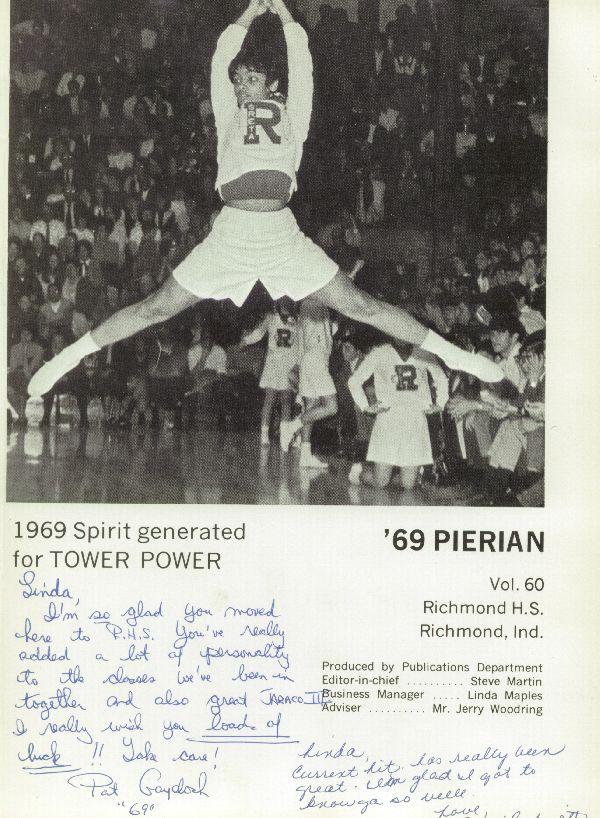 R
R
R
1969 Spirit generated
for TOWER POWER
'69 PIERIAN
Vol. 60
Richmond H.S.
Richmond, Ind.
Produced by Publications Department
Editor-in-chief .......... Steve Martin
Business Manager ..... Linda Maples
Adviser .......... Mr. Jerry Woodring
Linda,
I'm so glad you moved
here to R.H.S. You've really
added a lot of personality
to the classes we've been in
together and also great
I really wish you loads of
luck!! Take care!
Pat
"69"
Linda,
Current Lit. has really been
great. I'm glad I got to
know ya so well.
Love,